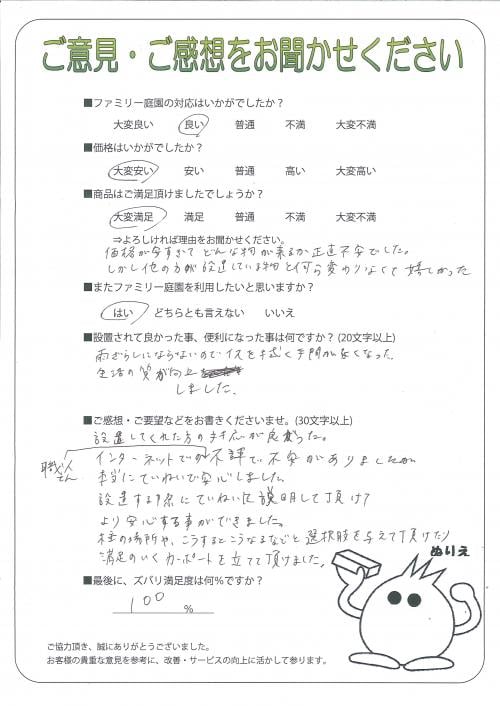 ご意見・ご感想をお聞かせください
■ファミリー庭園の対応はいかがでしたか？
大変良い 良い 普通 不満 大変不満
■価格はいかがでしたか？
大変安い 安い 普通 高い 大変高い
■商品はご満足頂けましたでしょうか？
大変満足 満足 普通 不満 大変不満
⇒よろしければ理由をお聞かせください。
価格が安すぎてどんな物が来るか正直不安でした。
しかし他の方が設置している物と何ら変わりなくて嬉しかった
■またファミリー庭園を利用したいと思いますか？
はい どちらとも言えない いいえ
■設置されて良かった事、便利になった事は何ですか？(20文字以上)
雨ざらしにならないのでイスを拭く手間が無くなった。
生活の質が向上
しました。
■ご感想・ご要望などをお書きくださいませ。(30文字以上)
設置してくれた方の対応が良かった。
職人さん
インターネットでの不評で不安がありましたが
本当にていねいで安心しました。
設置する際にていねいに説明して頂け
より安心する事ができました。
柱の場所や、こうするとこうなるなどと選択肢を与えて頂けたり
満足のいくカーポートを立てて頂けました。
ぬりえ
■最後に、ズバリ満足度は何％ですか？
100 ％
ご協力頂き、誠にありがとうございました。
お客様の貴重な意見を参考に、改善・サービスの向上に活かして参ります。